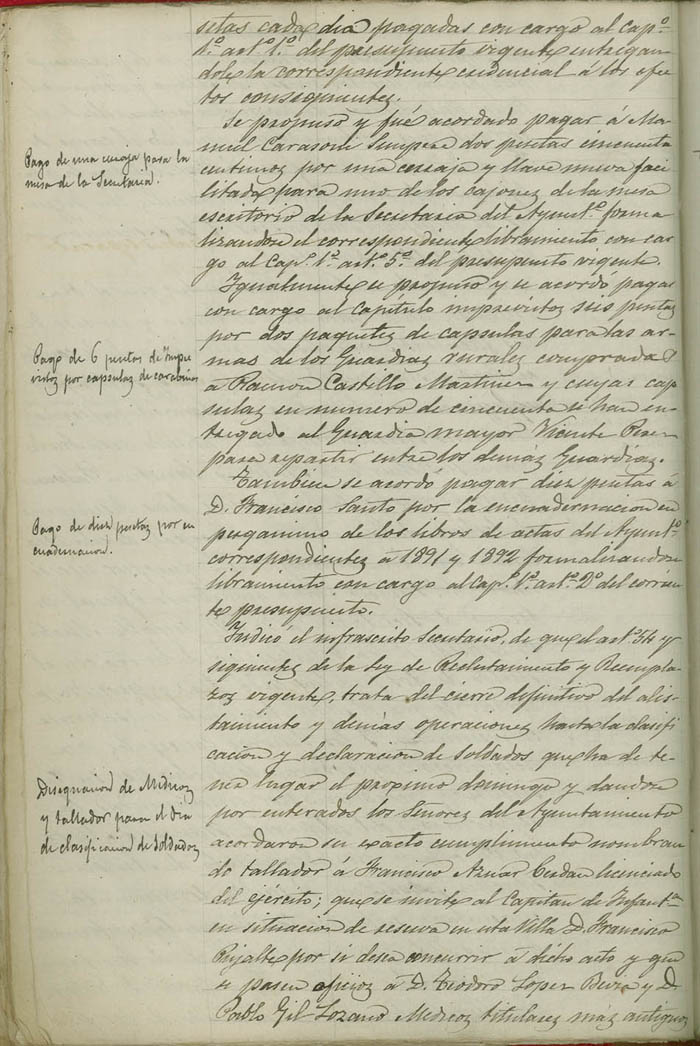 setas cada dia pagadas con cargo al Cap.º
1.º art.º 1.º del presupuesto vigente entregan
dole la correspondiente credencial á los efec
tos consiguientes.
Pago de una cerraja para la
mesa de la Secretaría.
Se propuso y fué acordado pagar á Ma-
nuel Carasone Sempere dos pesetas cincuenta
centimos por una cerraja y llave nueva faci
litada para uno de los cajones de la mesa
escritorio de la Secretaria del Ayunt.º forma
lizandose el correspondiente libramiento con car
go al Cap.º 1.º art.º 5.º del presupuesto vigente.
Pago de 6 pesetas de Impre
vistos por capsulas de carabinas
Igualmente se propuso y se acordó pagar
con cargo al Capítulo imprevistos seis pesetas
por dos paquetes de capsulas para las ar-
mas de los Guardias rurales comprada á
a Ramon Castillo Martinez y cuyas cap
sulas en numero de cincuenta se han en-
tregado al Guardia mayor Vicente Perez
para repartir entre los demás Guardias.
Pago de diez pesetas por en
cuadernacion.
Tambien se acordó pagar diez pesetas á
D. Francisco Santo por la encuadernacion en
pergamino de los libros de actas del Ayunt.º
correspondientes á 1891 y 1892 formalizandose
libramiento con cargo al Cap.º 1.º art.º 2.º del corrien
te presupuesto.
Designacion de Medicos
y tallador para el dia
de clasificacion de soldados
Indicó el infrascrito Secretario, de que el art.º 54 y
siguientes de la Ley de Reclutamiento y Reempla
zos vigente, trata del cierre definitivo del alis-
tamiento y demás operaciones hasta la clasifi
cacion y declaracion de soldados que ha de te-
ner lugar el proximo domingo y dandose
por enterados los Señores del Ayuntamiento
acordaron su exacto cumplimiento nombran
do tallador á Francisco Aznar Cerdan licenciado
del ejército; que se invite al Capitan de Infant.ª
en situacion de reserva en esta Villa D. Francisco
por si desea concurrir á dicho acto y que
se pasen oficios á D. Teodoro Lopez y D.
Pablo Gil Lozano Medicos titulares más antiguos